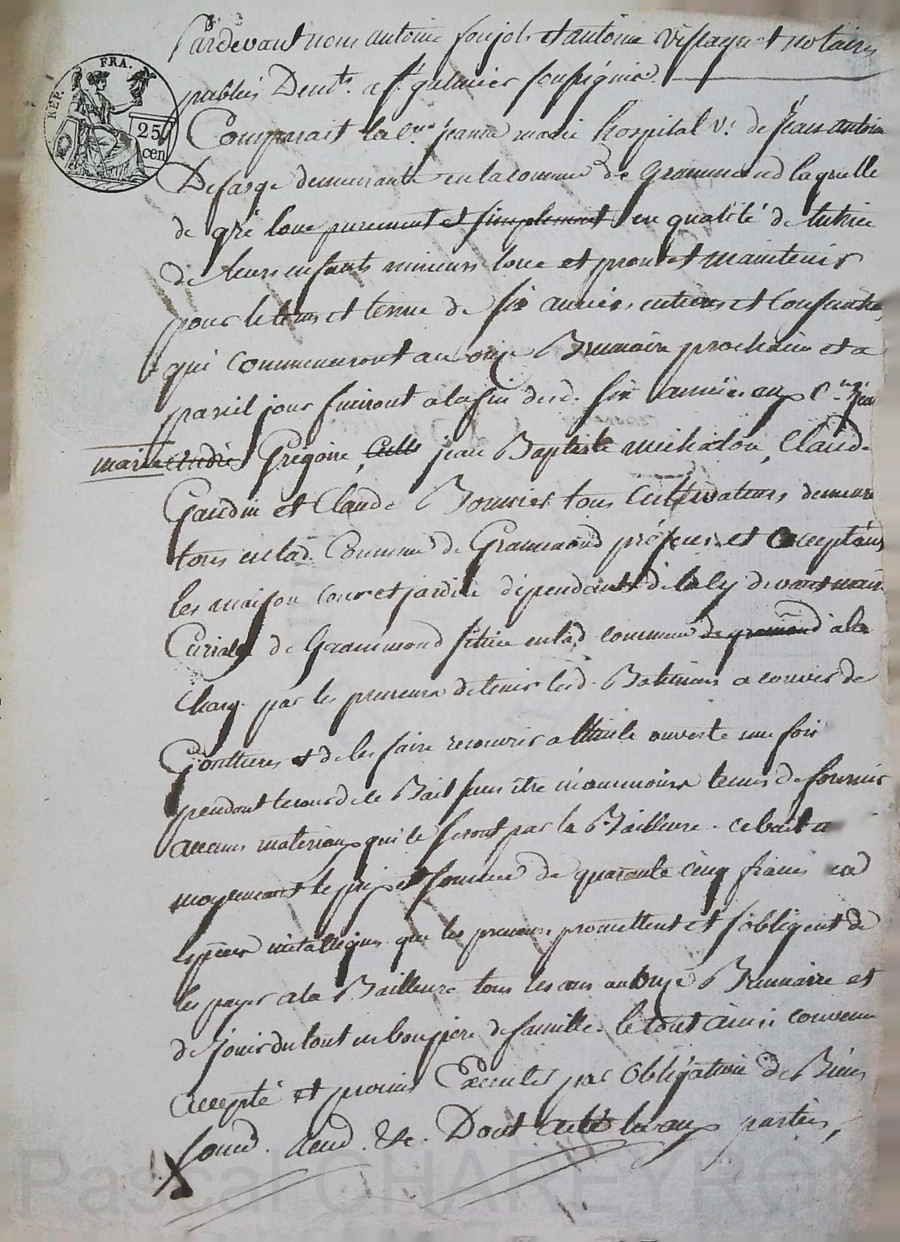 RÉP. FRA.
25 cen
Pardevant nous antoine soujol et antoine notaires
publics a st. galmier soussignés.
Comparait la jeanne marie hospital v.e de jean antoine
Defarge demeurante en la commune de Grammond laquelle
de gré loue purement et simplement en qualité de tutrice
de leurs enfants mineurs loue et promet maintenir
pour le tems et terme de six années entieres et consecutives
qui commenceront au onze Brumaire prochain et a
pareil jour finiront a la fin desd. six années aux
marie Grégoire, jean Baptiste michalon, Claude
Gardin et Claude tous cultivateurs demeurants
tous en lad. Commune de Grammond présents et acceptants
les maison cour et jardin dépendants de devant
Curiale de Grammond située en lad commune de gramond a la
Charge par les preneurs de tenir lesd. Batimens a couvert de
Gouttieres et de les faire recouvrir a thuile ouverte une fois
pendant le cours de ce Bail sans être néanmoins tenus de fournir
aucuns materiaux qui le seront par la Bailleure. ce bail a
moyennant le prix et somme de quarante cinq francs en
espèces métalliques que les preneurs promettent et s'obligent de
les payer a la Bailleure tous les ans au onze Brumaire et
de jouir du tout en bon pere de famille. le tout ainsi convenu
accepté et promis Exécuter par Obligation de Biens
soumd. rend. &c. Dont acte lu aux parties,
Pascal CHAREYRON